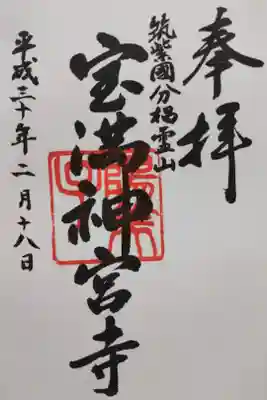 奉拝
筑紫國分楊霊山
宝満神宮寺
平成三十年二月十八日